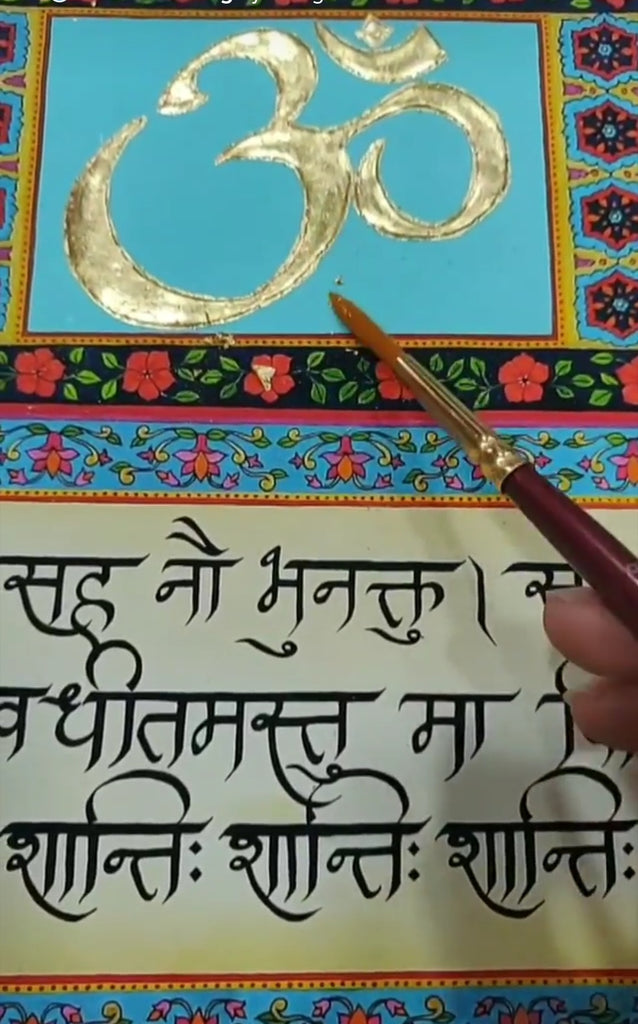 ॐ
सह नौ भुनक्तु। स
वधीतमस्तु मा
शान्तिः शान्तिः शान्तिः